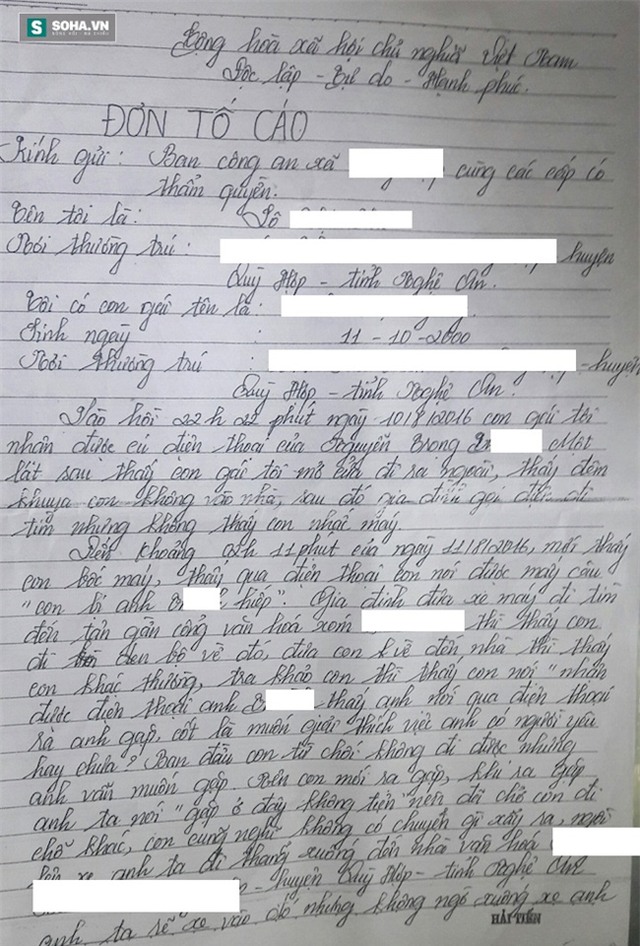 SOHA.VN
Cộng hoà xã hội chủ nghĩa Việt Nam
Độc lập - Tự do - Hạnh phúc.
ĐƠN TỐ CÁO
Kính gửi: Ban công an xã cùng các cấp có
thẩm quyền.
Tên tôi là: Lô
Nơi thường trú: huyện
Quỳ Hợp - tỉnh Nghệ An.
Tôi có con gái tên là:
Sinh ngày : 11-10-2000
Nơi thường trú : -huyện
Quỳ Hợp - tỉnh Nghệ An.
Vào hồi 22h 22 phút ngày 10/8/2016 con gái tôi
nhân được cú điện thoại của Nguyễn Trong Một
lát sau thấy con gái tôi mở cửa đi ra ngoài, thấy đêm
khuya con không vào nhà, sau đó gia đình gọi điện đi
tìm nhưng không thấy con nhấc máy.
Đến khoảng 02h 11phút của ngày 11/8/2016, mới thấy
con bốc máy, thấy qua điện thoại con nói được mấy câu
"con bị anh hiếp". Gia đình đưa xe máy đi tìm
đến tận gần cổng văn hoá xóm thì thấy con
đi bộ về đó, đưa con về đến nhà thì thấy
con khác thường, tra khảo con thì thấy con nói "nhận
được điện thoại anh thấy anh nói qua điện thoại
ra anh gặp, cốt là muốn giải thích việc anh có người yêu
hay chưa? Ban đầu con từ chối không đi được nhưng
anh vẫn muốn gặp. Nên con mới ra gặp, khi ra gặp
anh ta nói "gặp ở đây không tiện nên đi chỗ còn đi
chỗ khác, con cũng nghĩ không có chuyện gì xảy ra, ngồi
lên xe anh ta đi thẳng xuống đến nhà văn hoá
- huyện Quỳ Hợp - tỉnh Nghệ An
anh ta rẽ xe vào đó nhưng không ngó xuống xe anh
HẢI TIẾN